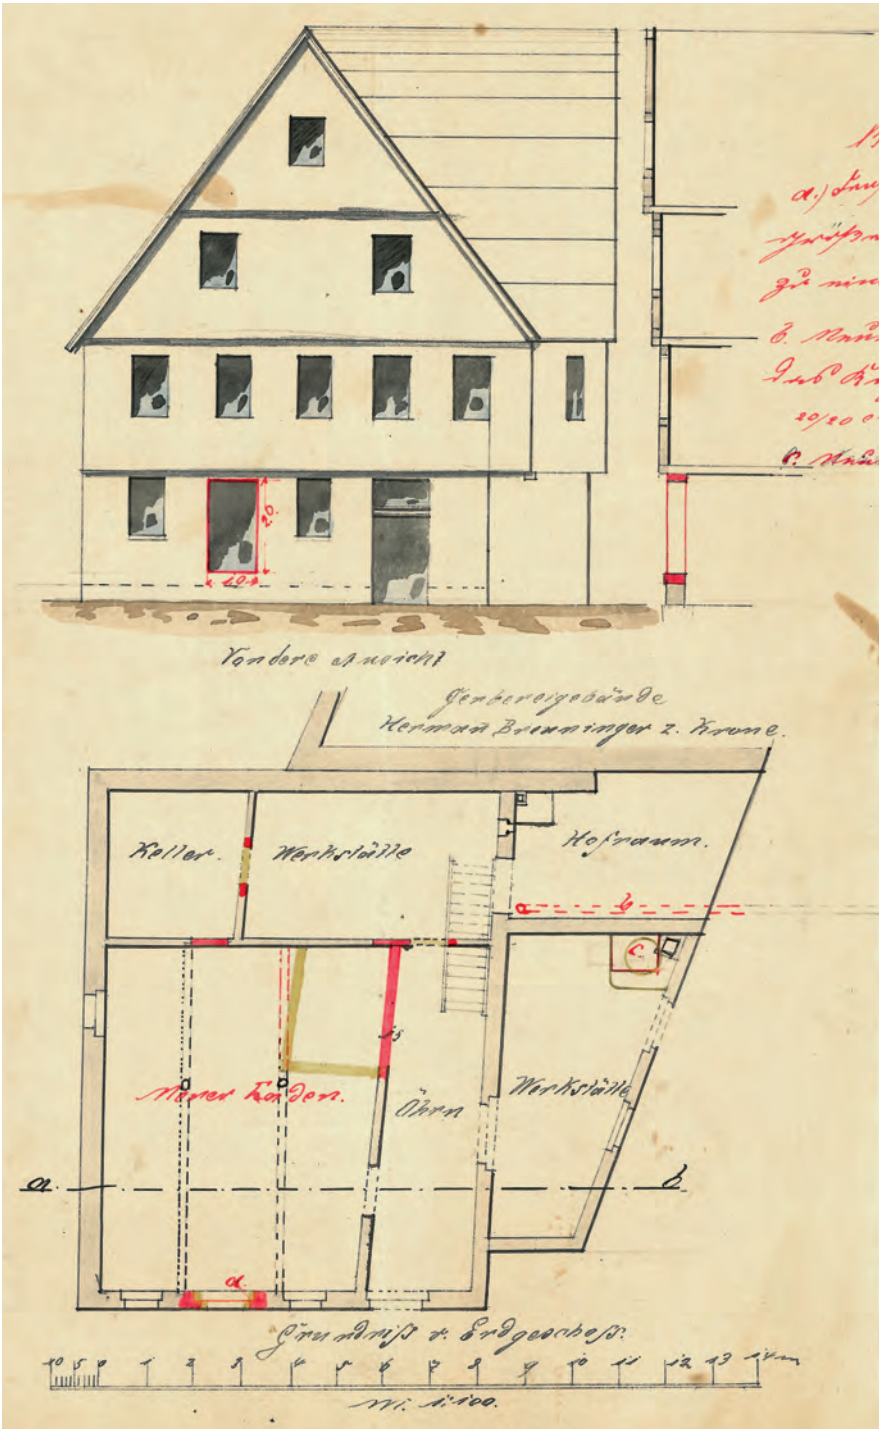 a.)
zu
b.
das
20/20
c.
20.
10.
Vordere Ansicht
Gerbereigebäude
Herman Breuninger z. Krone.
Keller.
Werkstätte
Hofraum.
b
c.
15
Neuer Laden.
Öhrn
Werkstätte
a.
b
a.
Grundriß v. Erdgeschoß.
10 5 0 1 2 3 4 5 6 7 8 9 10 11 12 13 14 m
M. 1:100.